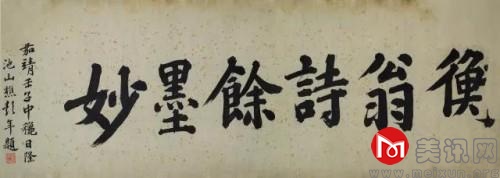 衡翁詩餘墨妙
嘉靖壬子中穐日隆
池山樵彭年題
美讯网